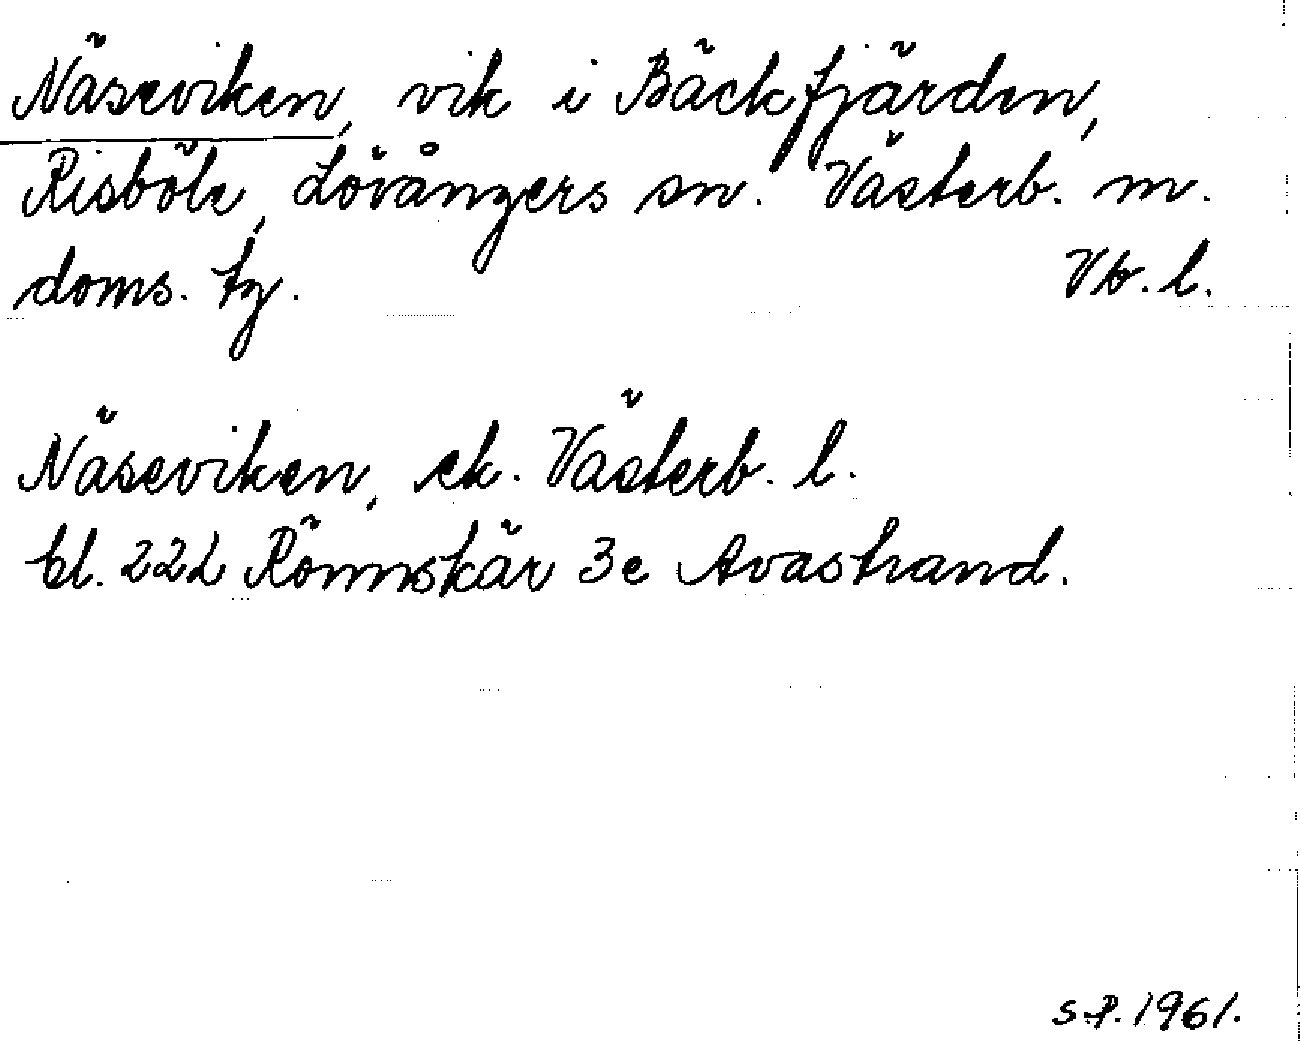 Näseviken, vik i Bäckfjärden,
Risböle, Lövångers sn. Västerb. m.
doms. tg. Vb. l.
Näseviken, ek. Västerb. l.
bl. 222 Rönnskär 3e Avastrand.
S.P. 1961.